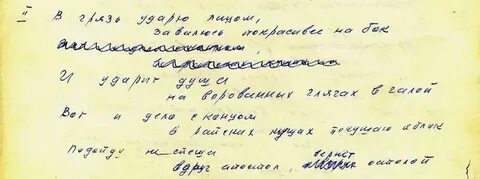 II В грязь ударю лицом,
Завалюсь покрасивее на бок
И ударит душа
на ворованных клячах в галоп
Вот и дело с концом
в райских кущах покушаю яблок
Подойду не спеша
вдруг апостол, вернет остолоп